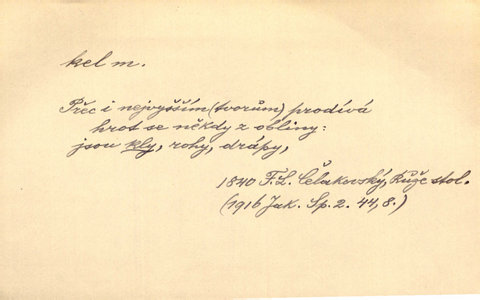 kel m.
Přec i nejvyšším (tvorům) prodívá
hrot se někdy z obliny:
jsou kly, rohy, drápy,
1840 F. L. Čelakovský, Růže stol.
(1916 Jak. Sp. 2. 44, 8.)